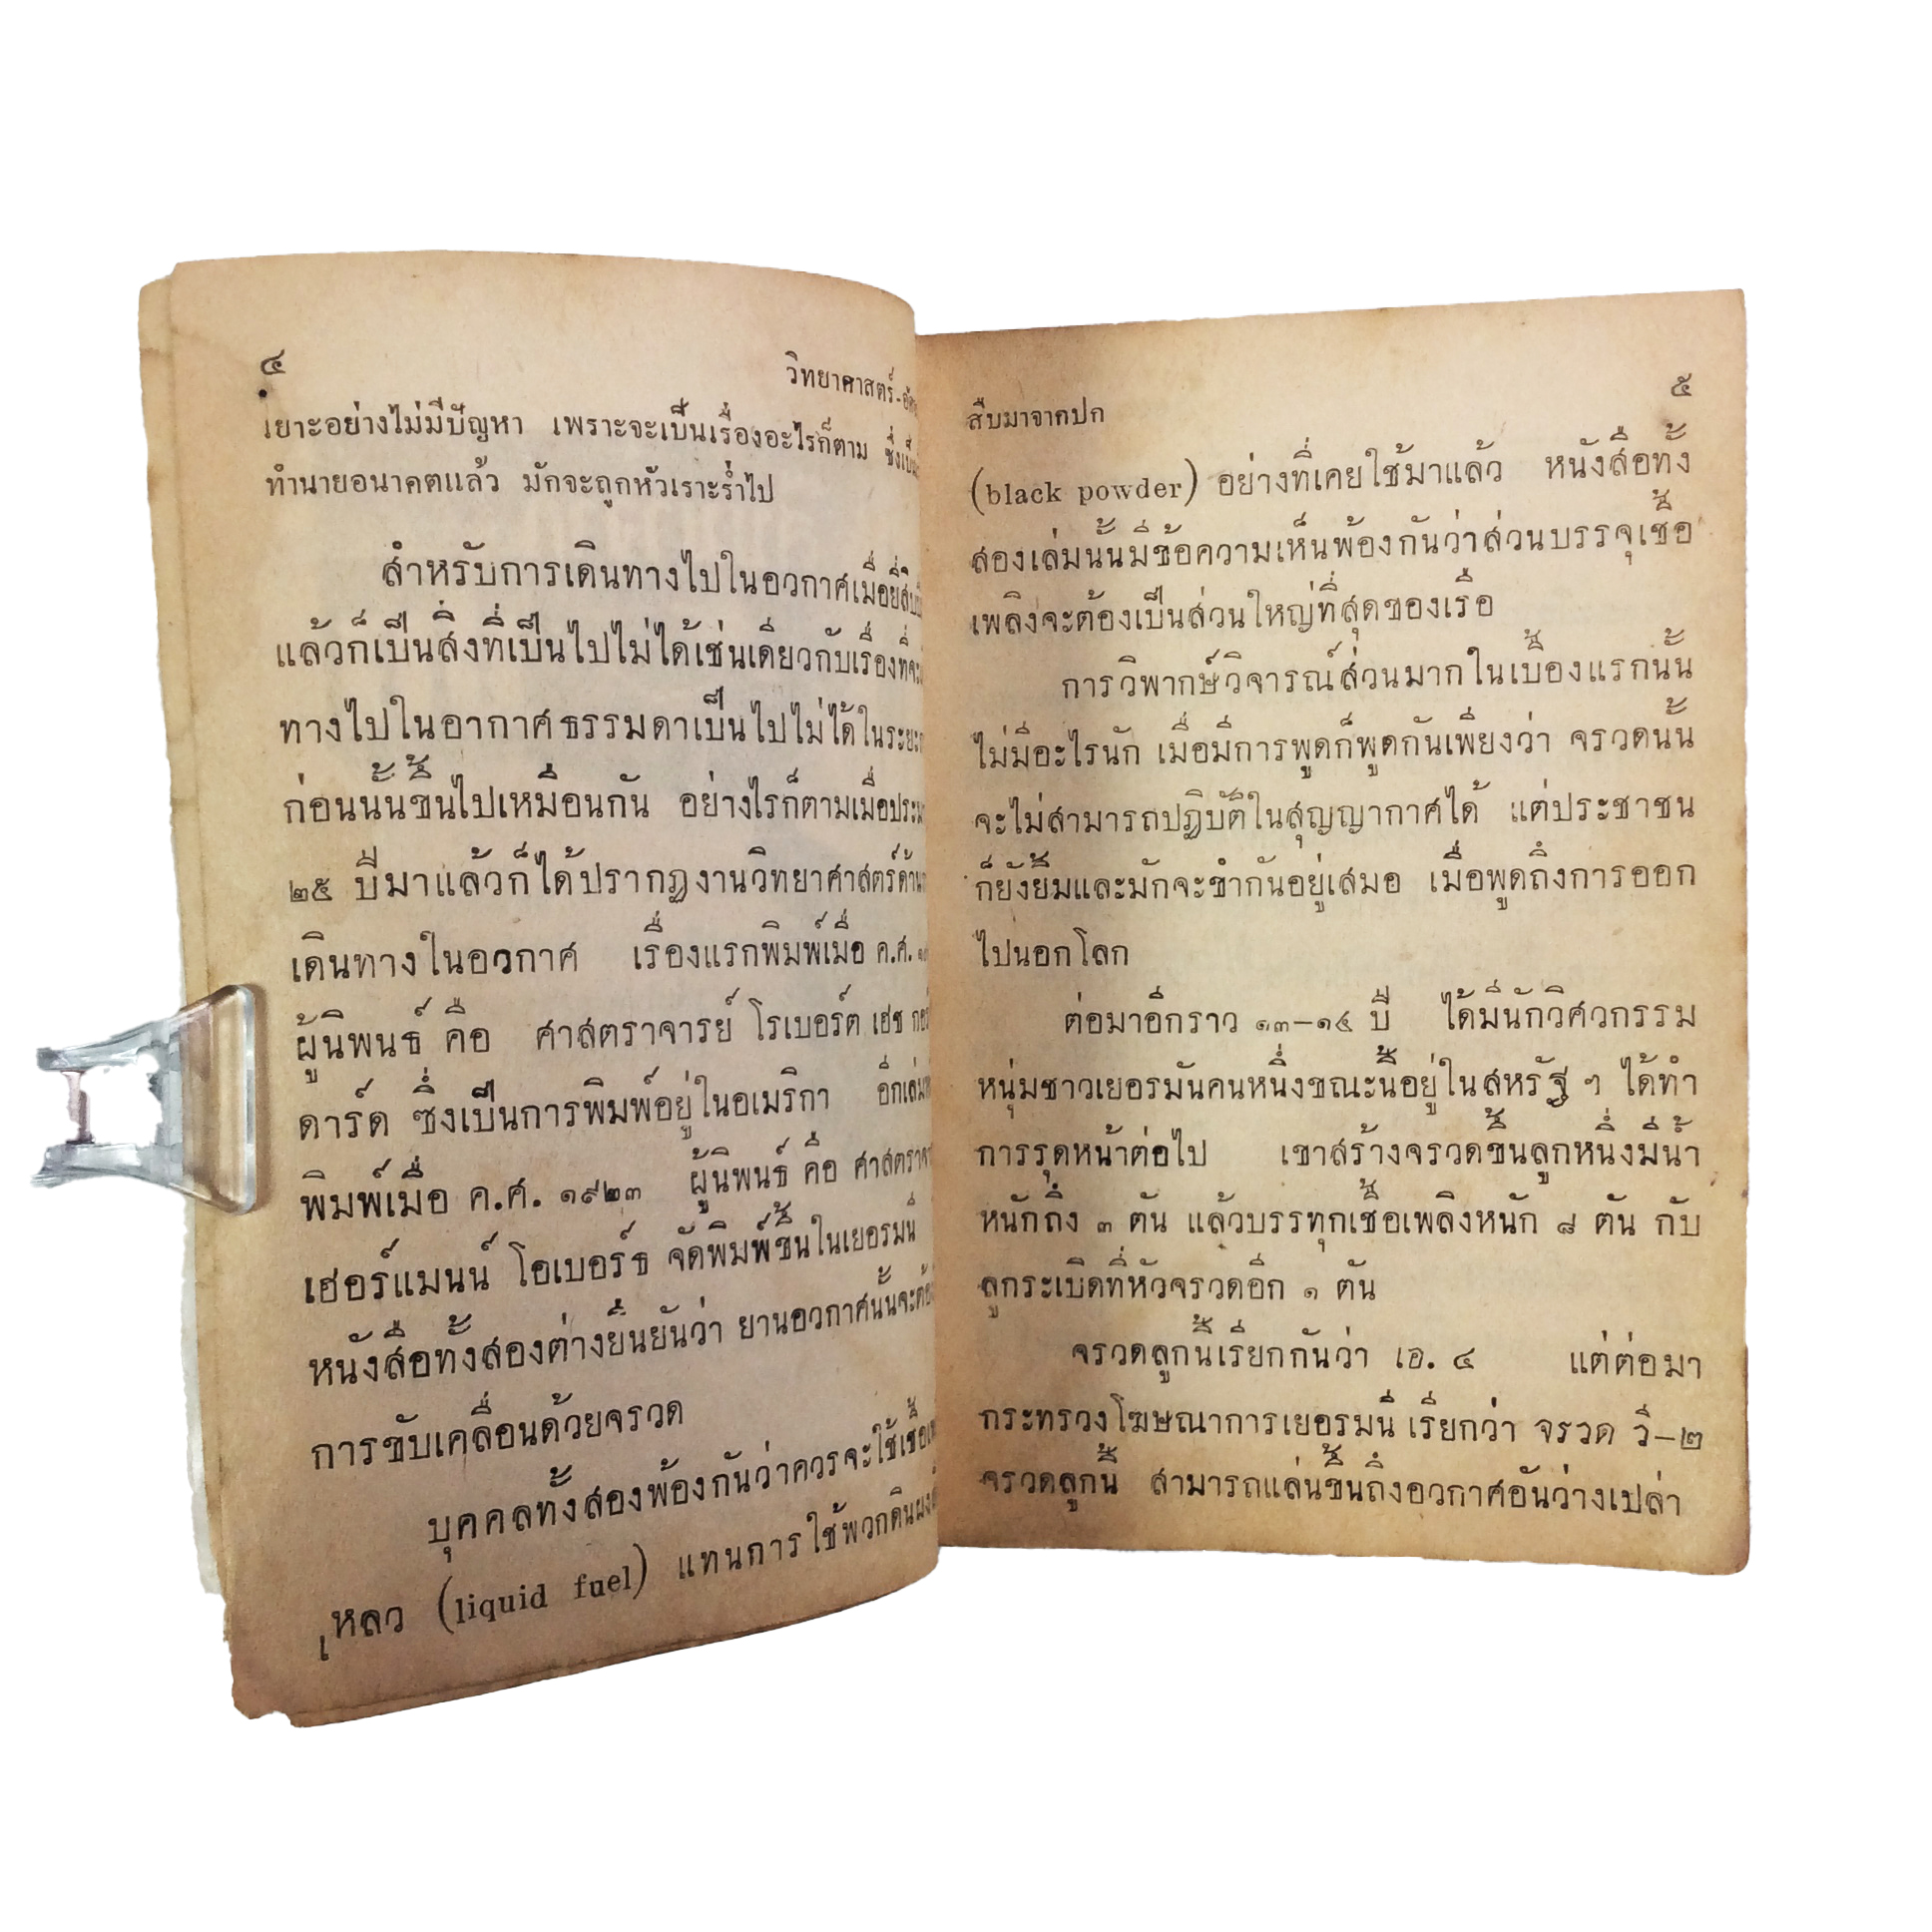 ๔
วิทยาศาสตร์-
เยาะอย่างไม่มีปัญหา เพราะจะเป็นเรื่องอะไรก็ตาม
ทำนายอนาคตแล้ว มักจะถูกหัวเราะร่ำไป
สำหรับการเดินทางไปในอวกาศเมื่อยี่สิบ
แล้วก็เป็นสิ่งที่เป็นไปไม่ได้เช่นเดียวกับเรื่องที่จะ
ทางไปในอากาศธรรมดาเป็นไปไม่ได้ในระยะ
ก่อนนั้นขึ้นไปเหมือนกัน อย่างไรก็ตามเมื่อ
๒๕ ปีมาแล้วก็ได้ปรากฏงานวิทยาศาสตร์ด้าน
เดินทางในอวกาศ เรื่องแรกพิมพ์เมื่อ ค.ศ.
ผู้นิพนธ์ คือ ศาสตราจารย์ โรเบอร์ต เฮช
ดาร์ด ซึ่งเป็นการพิมพ์อยู่ในอเมริกา
พิมพ์เมื่อ ค.ศ. ๑๙๒๓ ผู้นิพนธ์ คือ
เฮอร์แมนน์ โอเบอร์ธ จัดพิมพ์ขึ้นในเยอรมนี
หนังสือทั้งสองต่างยืนยันว่า ยานอวกาศนั้นจะ
การขับเคลื่อนด้วยจรวด
บุคคลทั้งสองพ้องกันว่าควรจะใช้
เหลว (liquid fuel) แทนการใช้พวกดินผง
๕
สืบมาจากปก
(black powder) อย่างที่เคยใช้มาแล้ว หนังสือทั้ง
สองเล่มนั้นมีข้อความเห็นพ้องกันว่าส่วนบรรจุเชื้อ
เพลิงจะต้องเป็นส่วนใหญ่ที่สุดของเรือ
การวิพากษ์วิจารณ์ส่วนมากในเบื้องแรกนั้น
ไม่มีอะไรนัก เมื่อมีการพูดก็พูดกันเพียงว่า จรวดนั้น
จะไม่สามารถปฏิบัติในสุญญากาศได้ แต่ประชาชน
ก็ยังยิ้มและมักจะขำกันอยู่เสมอ เมื่อพูดถึงการออก
ไปนอกโลก
ต่อมาอีกราว ๑๓–๑๔ ปี ได้มีนักวิศวกรรม
หนุ่มชาวเยอรมันคนหนึ่งขณะนี้อยู่ในสหรัฐ ฯ ได้ทำ
การรุดหน้าต่อไป เขาสร้างจรวดขึ้นลูกหนึ่งมีน้ำ
หนักถึง ๓ ตัน แล้วบรรทุกเชื้อเพลิงหนัก ๘ ตัน กับ
ลูกระเบิดที่หัวจรวดอีก ๑ ตัน
จรวดลูกนี้เรียกกันว่า เอ. ๔ แต่ต่อมา
กระทรวงโฆษณาการเยอรมนี เรียกว่า จรวด วี–๒
จรวดลูกนี้ สามารถแล่นขึ้นถึงอวกาศอันว่างเปล่า